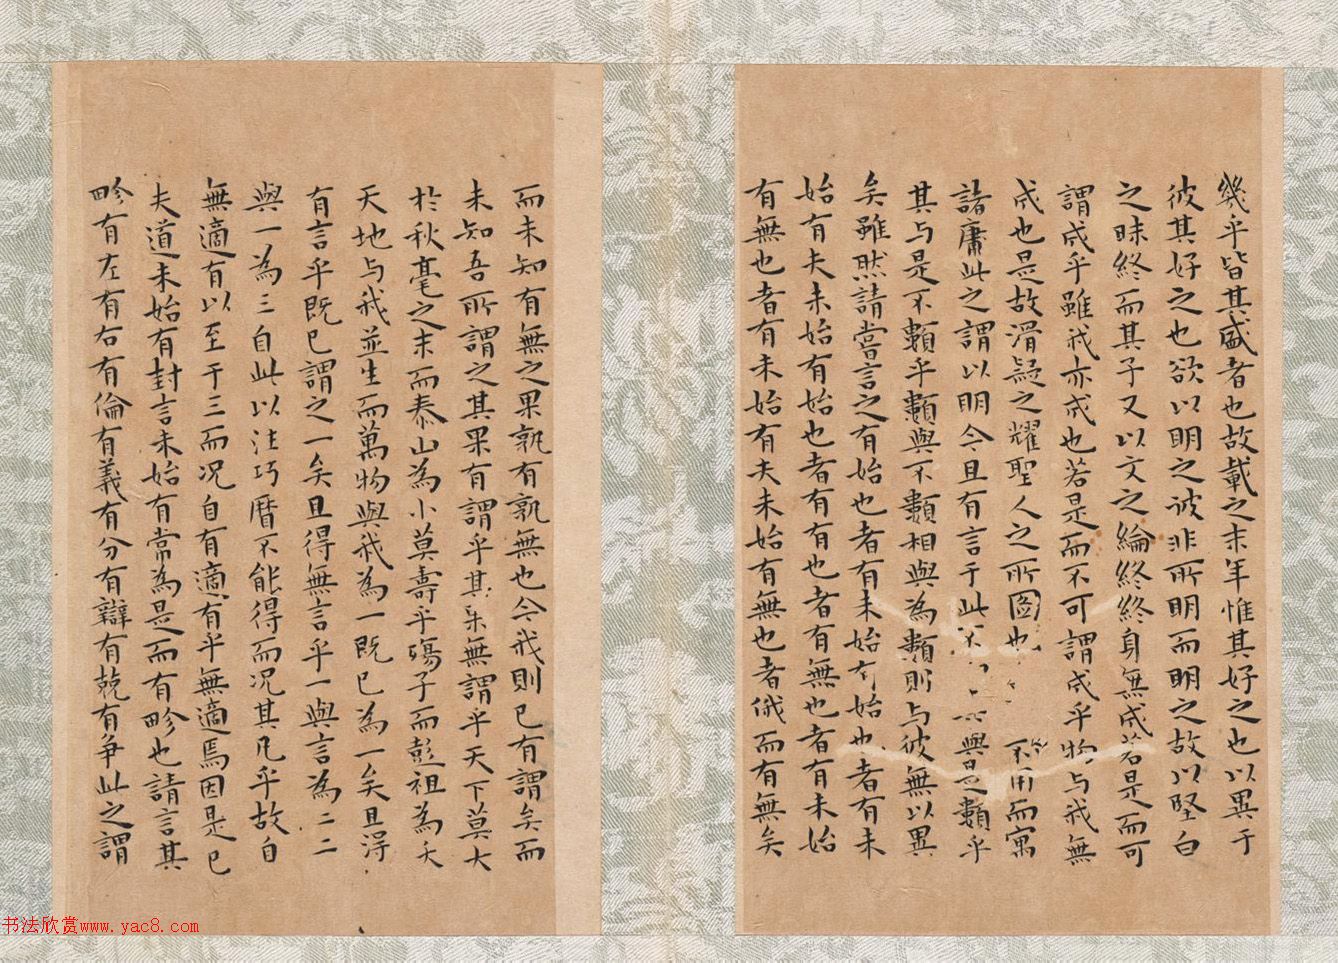 幾乎皆其盛者也故載之末年惟其好之也以異于
彼其好之也欲以明之彼非所明而明之故以堅白
之昧終而其子又以文之綸終終身無成若是而可
謂成乎雖我亦成也若是而不可謂成乎物与我無
成也是故滑疑之耀聖人之所啚也 不用而寓
諸庸此之謂以明今且有言于此不 與是類乎
其与是不類乎類與不類相與為類則与彼無以異
矣雖然請嘗言之有始也者有未始有始也者有未
始有夫未始有始也者有有也者有無也者有未始
有無也者有未始有夫未始有無也者俄而有無矣
而未知有無之果孰有孰無也今我則已有謂矣而
未知吾所謂之其果有謂乎其果無謂乎天下莫大
於秋毫之末而泰山為小莫壽乎殤子而彭祖為夭
天地与我並生而萬物與我為一既已為一矣且得
有言乎既已謂之一矣且得無言乎一與言為二二
與一為三自此以往巧曆不能得而況其凡乎故自
無適有以至于三而况自有適有乎無適焉因是已
夫道未始有封言未始有常為是而有畛也請言其
畛有左有右有倫有義有分有辯有競有爭此之謂
书法欣赏www.yac8.com